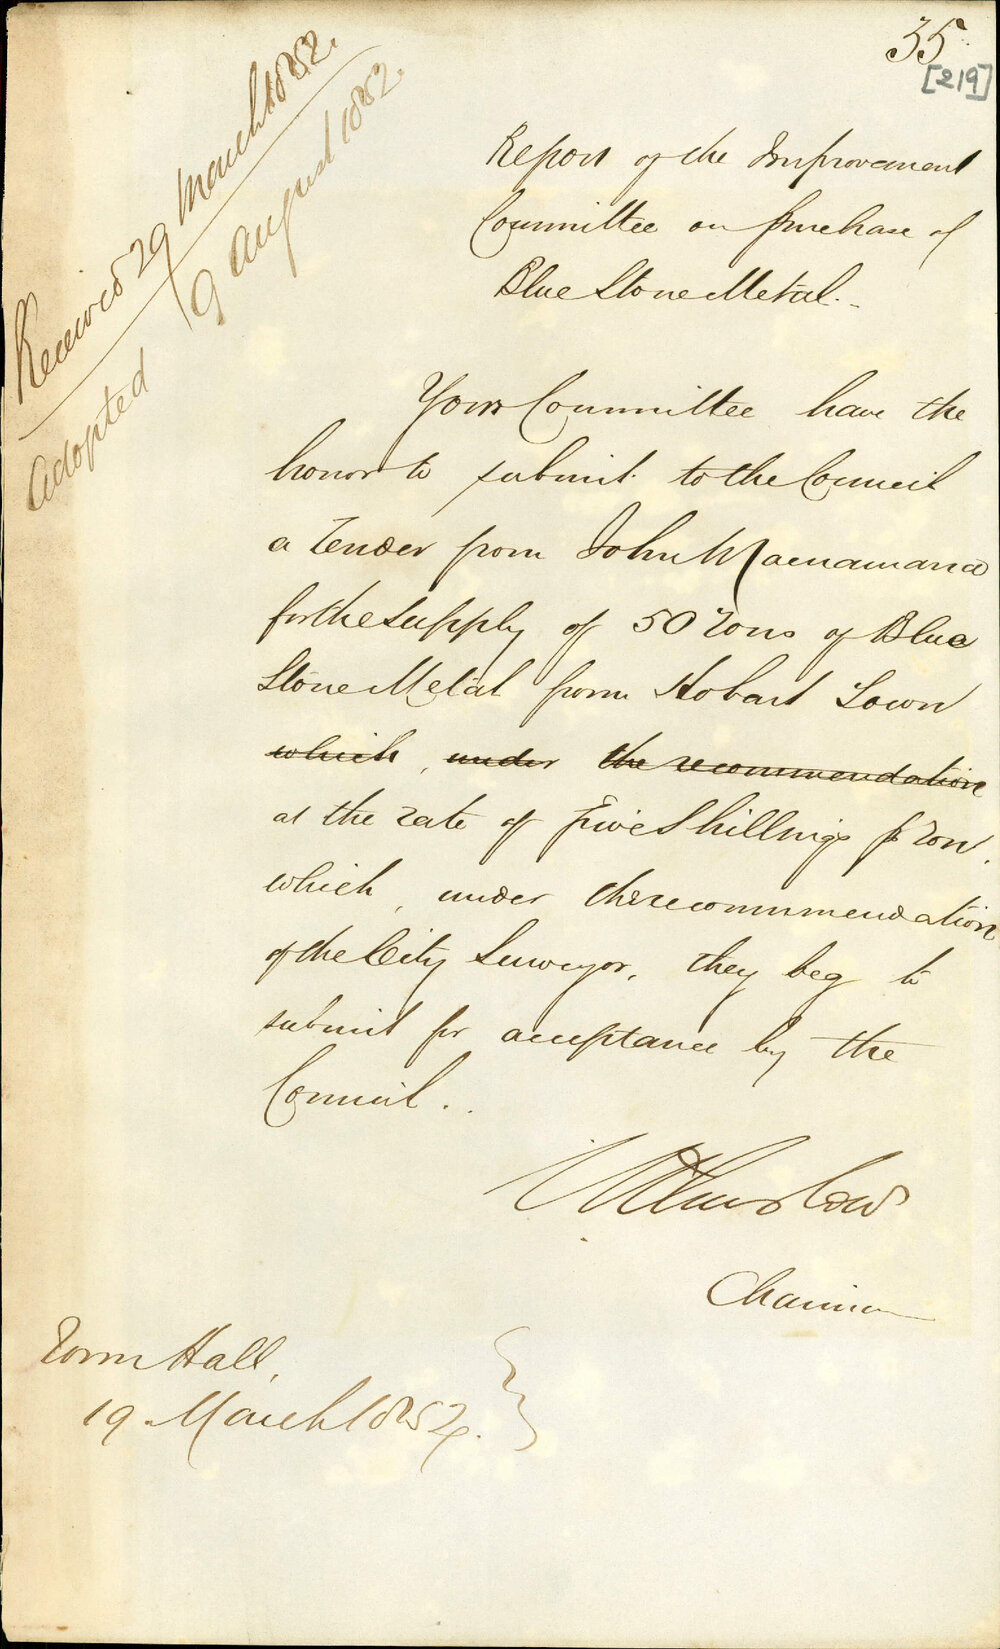 35
[219]
Received 29 March 1852.
Adopted 9 August 1852.
Report of the Improvement
Committee on purchase of
Blue Stone Metal.
Your Committee have the
honor to submit to the Council
a Tender from John Macnamara
for the supply of 50 Tons of Blue
Stone Metal from Hobart Town
which, under the recommendation
at the rate of Five Shillings p Ton.
which, under the recommendation
of the City Surveyor, they beg to
submit for acceptance by the
Council.
Thurlow
Chairman
Town Hall,
19 March 1852.